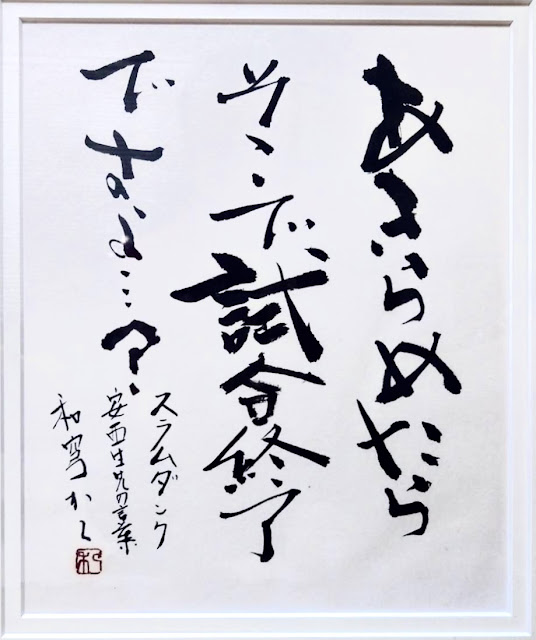 あきらめたら
そこで試合終了
ですよ…?
スラムダンク
安西先生の言葉
和穹かく